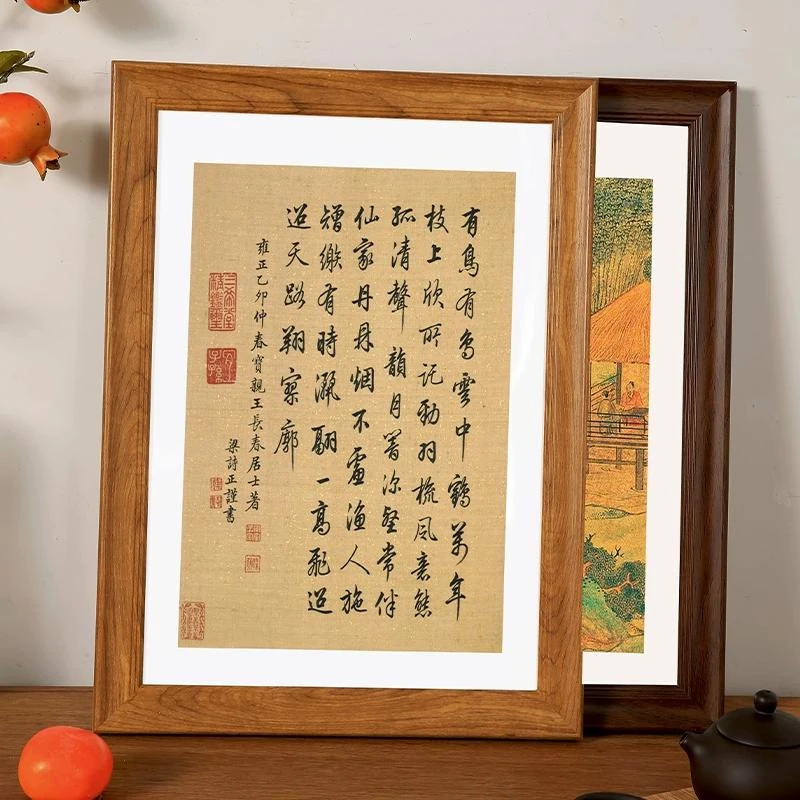 有鳥有鳥雲中鶴萬年
枝上欣所託勁羽梳風意態
孤清聲韻月深壑常伴
仙家丹鼎烟不虞漁人施
矰繳有時灑翮一高飛迢
迢天路翔寥廓
雍正乙卯仲春寶親王長春居士著
梁詩正謹書
三希堂精鑑璽
宜子孫